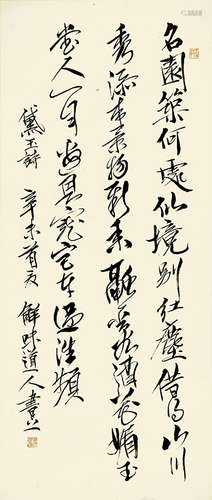 名園築何處仙境別紅塵借得山川
秀添来景物新香融金谷酒花媚玉
堂人何幸邀恩寵宮車過往頻
黛玉詩 辛未首夏 解味道人書